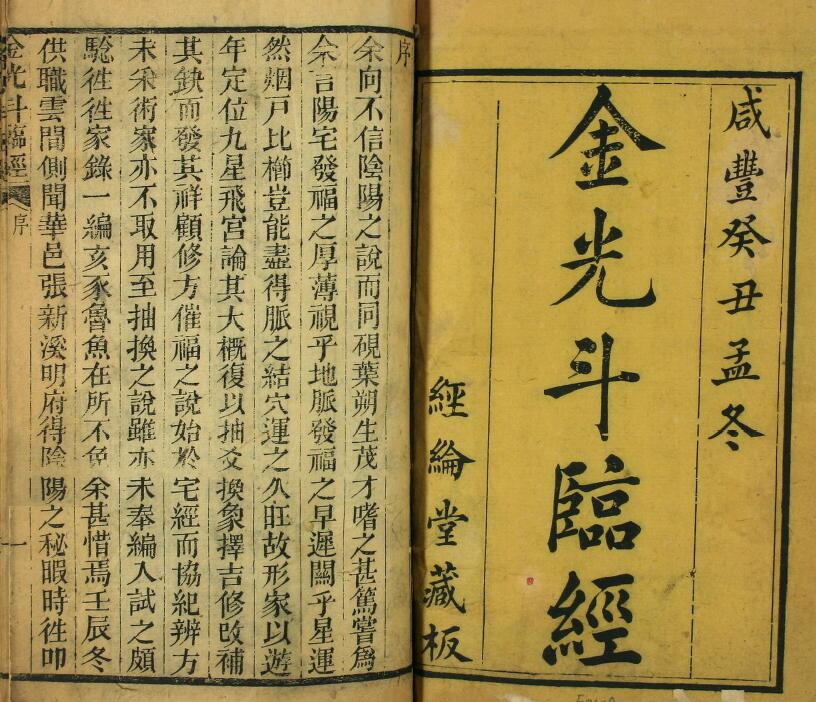 咸豐癸丑孟冬
金光斗臨經
經綸堂藏板
序
余向不信陰陽之說而同硯葉朔生茂才嗜之甚篤嘗為
余言陽宅發福之厚薄視乎地脈發福之早遲關乎星運
然烟戸比櫛豈能盡得脈之結穴運之久旺故形家以遊
年定位九星飛宮論其大概復以抽爻換象擇吉修改補
其缺而發其祥顧修方催福之說始於宅經而協紀辨方
未采術家亦不取用至抽換之說雖亦未奉編入試之頗
驗徃徃家錄一編亥豕魯魚在所不免余甚惜焉壬辰冬
供職雲間側聞華邑張新溪明府得陰陽之秘暇時徃叩
金光斗臨經 序 一